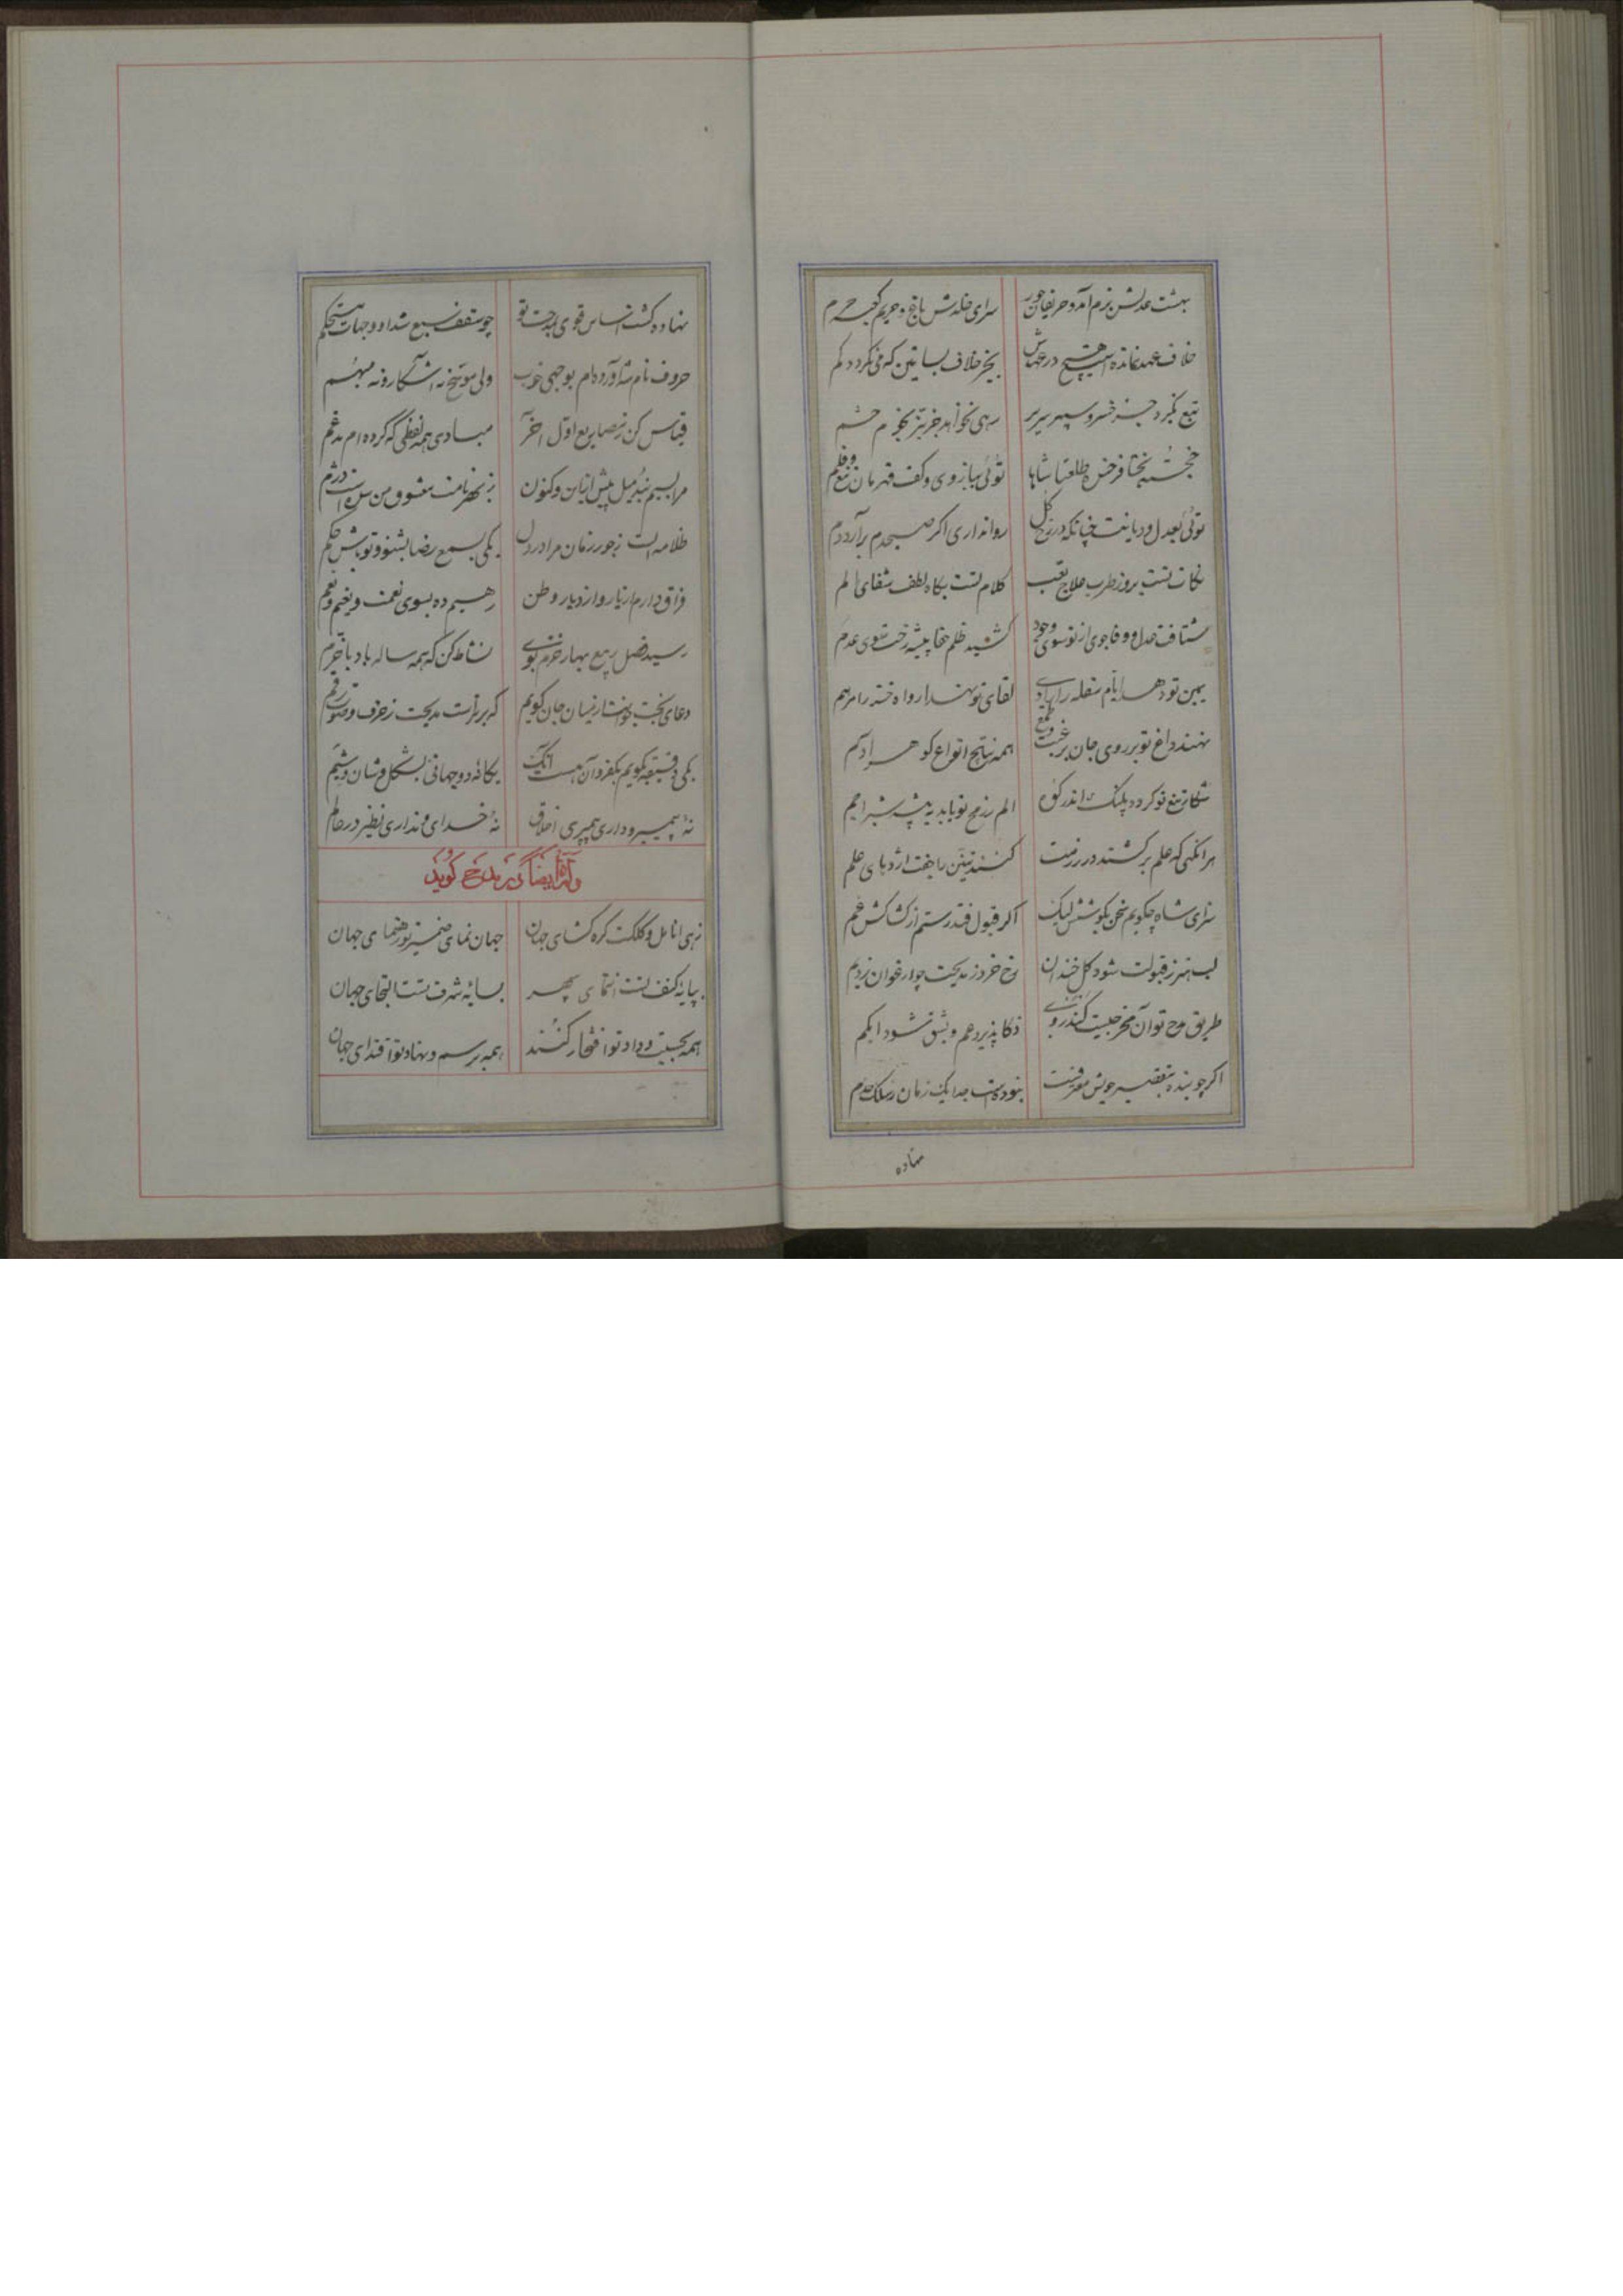 بهشت عدلش بزم آمد و حریفان حور سرای خلدش باغ و حریم کعبه حرم
خلاف عهد نمانده است هیچ در عهدش بجز خلاف بساتین که می نکردد کم
تیغ نکیرد جز خسرو سپهر سریر رهی نخواهد جز نجوم حشم
خجسته بختا فرخنده طلعتا شاها توئی ببازوی و کف قهرمان تیغ و قلم
توئی بعدل و دیانت چنانکه در رخ کل روا نداری اکر صبحدم برآرد دم
نکات تست بروز طرب علاج تعب کلام تست بکاه لطف شفای الم
شتافت عدل و وفا جوی از تو سوی وجود کشید ظلم جفا پیشه رخت سوی عدم
یمین تو دهد ایام سفله را لقای تو نهد ارواح خسته را مرهم
نهند داغ تو بر روی جان برغبت و طمع همه نتایج انواع کوهر آدم
شکار تیغ تو کردد پلنک اندر کوه الم ز رمح تو یابد به بیشه شیر اجم
هر آنکهی که علم برکشند در رزمت کنند تنین را جفت اژدهای علم
سزای شاه چکویم سخن بکوشش لیک اکر قبول فتد رستم از کشاکش غم
لب هنر ز قبولت شود کل خندان رخ خرد ز مدیحت چو ارغوان
طریق مدح تو آن ذکا پذیرد عم و نشود ابکم
اکر چو بنده بتقصیر خویش معترفست نبوده است جدا یک زمان ز سلک خدم
نهاده
نهاده کشت اساس قوی بمدحت تو چو سقف سبع شداد و جهات مستحکم
حروف نام شه آورده ام بوجهی خوب ولی موشح نه آشکار و نه مبهم
قیاس کن ز مصاریع اول و آخر مبادی همه لفظی که کرده ام مدغم
مرا بسیم نبد میل پیش ازین و کنون ز بهر نامت معشوق من شد است درم
ظلامه ایست ز جور زمان مرا در دل یکی بسمع رضا بشنو و تو باش حکم
فراق دارم از یار و از دیار و وطن رهیم ده بسوی نعمت و نعیم و نعم
رسید فصل ربیع بهار خرم بوی نشاط کن که همه ساله باد با خرم
دعای بخت تو کویم که برتر است مدیحت ز حرف و صوت و رقم
یکی دقیقه بکویم بکفر و آن اینست آنک یکانه دو جهانی بشکل و شان و شیم
نه پیمبر و داری پیمبری اخلاق نه خدای و نداری نظیر در عالم
وله ایضا در مدح کوید
زهی انامل و کلکت کره کشای جهان جهان نمای ضمیر تو رهنمای جهان
بپایه کنف تست انتمای سپهر بسایه شرف تست التجای جهان
همه بجیب وداد تو افتخار کنند همه برسم و نهاد تو اقتدای جهان